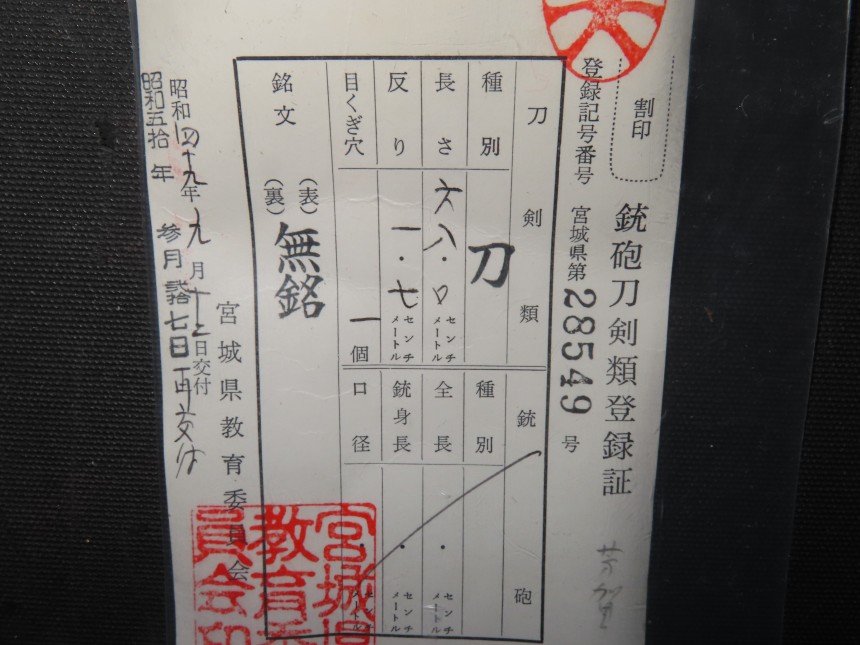 銃砲刀剣類登録証
割印
登録記号番号 宮城県第28549号
刀剣類
種別 刀
長さ 六八・〇 センチメートル
反り 一・七 センチメートル
目くぎ穴 一個
銘文 (表) (裏) 無銘
銃砲
種別
全長 ・ センチメートル
銃身長 ・ センチメートル
口径 ・ センチメートル
昭和四十九年 九月十二日交付
昭和五拾年 参月 七日再交付
宮城県教育委員会
宮城県
教育委
員会印